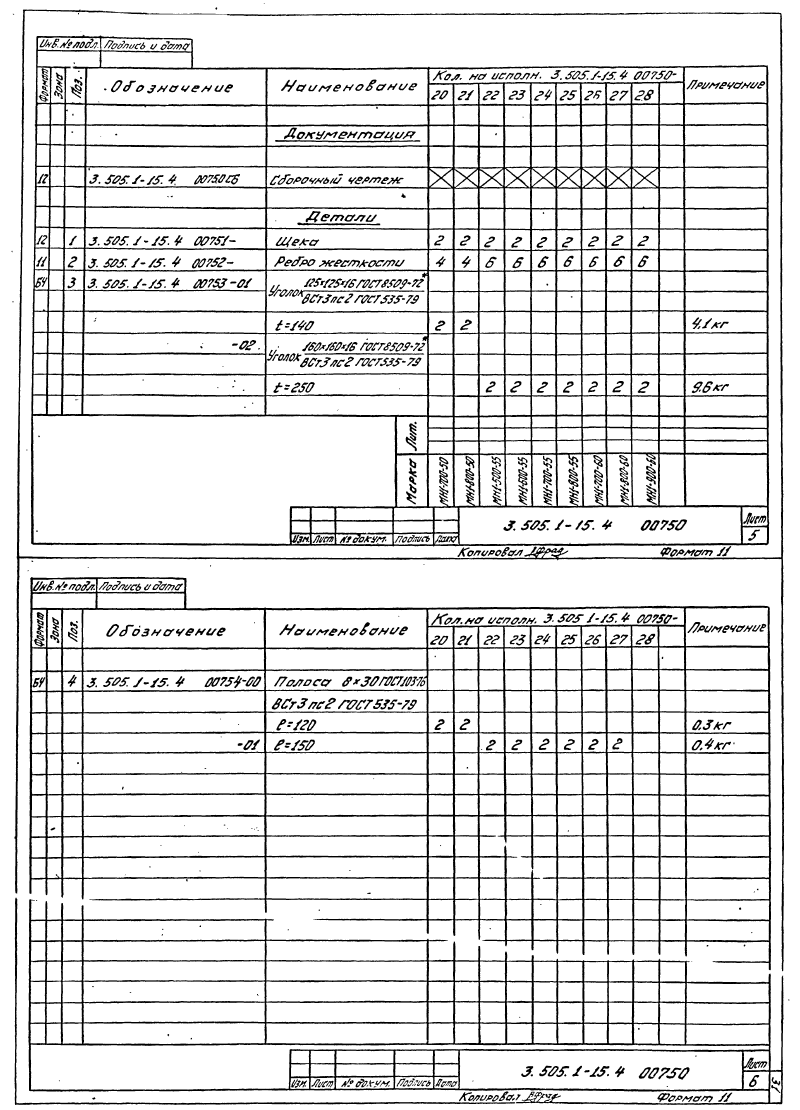 Инв. № подл. Подпись и дата
Формат Зона Поз. Обозначение Наименование Кол. на исполн. 3.505.1-15.4 00750- Примечание
20 21 22 23 24 25 26 27 28
Документация
12 3.505.1-15.4 00750СБ Сборочный чертеж
Детали
12 1 3.505.1-15.4 00751- Щека 2 2 2 2 2 2 2 2 2
11 2 3.505.1-15.4 00752- Ребро жесткости 4 4 6 6 6 6 6 6 6
БЧ 3 3.505.1-15.4 00753-01 Уголок 125×125×16 ГОСТ 8509-72*
ВСт3пс2 ГОСТ 535-79
ℓ=140 2 2 4.1 кг
-02 Уголок 160×160×16 ГОСТ 8509-72*
ВСт3пс2 ГОСТ 535-79
ℓ=250 2 2 2 2 2 2 2 9.6 кг
Лит.
Марка МН1-700-50 МН1-800-50 МН1-500-55 МН1-600-55 МН1-700-55 МН1-800-55 МН1-700-60 МН1-800-60 МН1-900-60
3.505.1-15.4 00750 Лист
5
Изм. Лист № докум. Подпись Дата
Копировал Формат 11
Инв. № подл. Подпись и дата
Формат Зона Поз. Обозначение Наименование Кол. на исполн. 3.505.1-15.4 00750- Примечание
20 21 22 23 24 25 26 27 28
БЧ 4 3.505.1-15.4 00754-00 Полоса 8×30 ГОСТ 103-76
ВСт3пс2 ГОСТ 535-79
ℓ=120 2 2 0.3 кг
-01 ℓ=150 2 2 2 2 2 2 0.4 кг
3.505.1-15.4 00750 Лист
6
Изм. Лист № докум. Подпись Дата
31
Копировал Формат 11